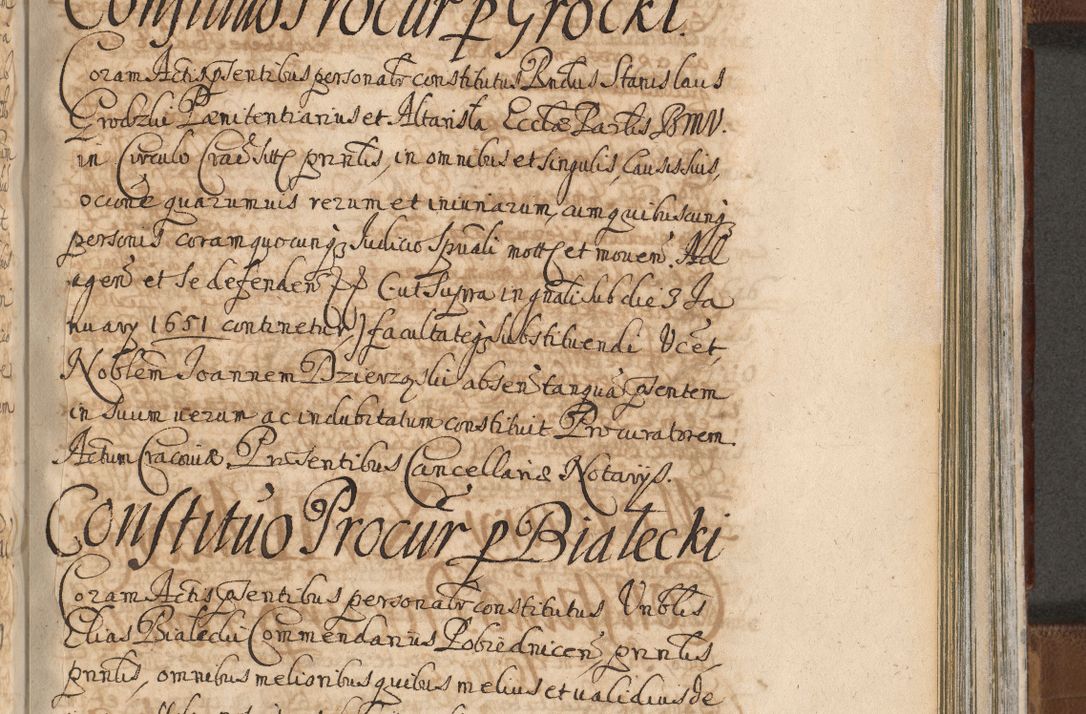 Constituo Procur p Grocki.
Coram Actis pſentibus personalr constitutus Rndus Stanislaus
Grodzki Pœnitentiarius et Altarista Eccłæ Par̃lis BMV.
in Circulo Crac̃ SittĘ prñntis, in omnibus et singulis, causis suis,
oc̃cione quarumuis rerum et iniuriarum, cum quibuscunqȝ
personis coram quocunqȝ Iudicio Spũali mottĘ et mouen̄. Ad
agen̄ et se defenden̄ Ꝑꝑ (ut Supra in gñali sub die 3 Ja
nuary 1651 continetur) facultateqȝ substituendi Vc̄et,
Noblem Joannem Dzierzǫski absen̄ tanquã pſentem
in suum uerum ac indubitatum constituit Procuratorem.
Actum Cracoviæ Præsentibus Cancellariæ Notarijs.
Constituo Procur̃ p Białecki
Coram Actis pſentibus personalr constitutus Vnblis
Elias Białecki Commendarius Pobiednicen̄, prñntis,
prñntis, omnibus melioribus quibus melius et ualidius de